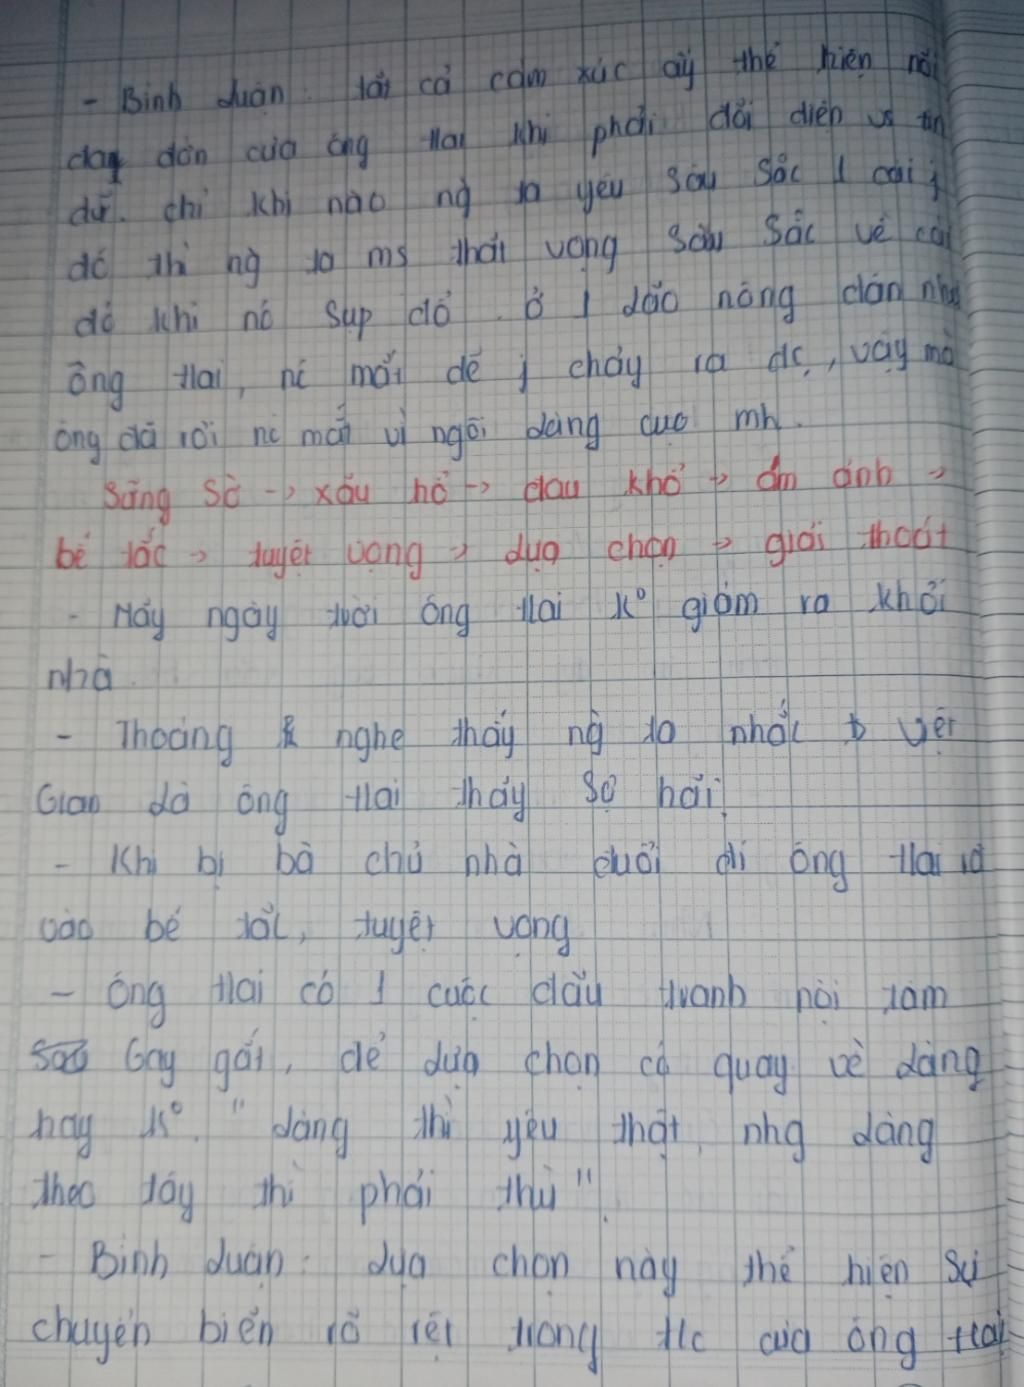 - Bình luận: tất cả cảm xúc ấy thể hiện nỗi
day dứt của ông Hai khi phải đối diện vs tin
dữ. chỉ khi nào ng ta yêu sâu sắc 1 cái j
đó thì ng ta ms thất vọng sâu sắc về cái
đó khi nó sụp đổ. ở 1 lão nông dân như
ông Hai, nc mắt dễ j chảy ra đc, vậy mà
ông đã rơi nc mắt vì ngôi làng của mh.
Sững sờ -> xấu hổ -> đau khổ -> ám ảnh ->
bế tắc -> tuyệt vọng -> lựa chọn -> giải thoát
- Mấy ngày trời ông Hai k° giám ra khỏi
nhà.
- Thoáng nghe thấy ng ta nhắc Việt
Gian là ông Hai thấy sợ hãi.
- Khi bị bà chủ nhà đuổi đi ông Hai rơi
vào bế tắc, tuyệt vọng
- ông Hai có 1 cuộc đấu tranh nội tâm
Gay gắt, để lựa chọn có quay về làng
hay k°. "làng thì yêu thật, nhg làng
theo tây thì phải thù".
- Bình luận: lựa chọn này thể hiện sự
chuyển biến rõ rệt trong của ông Hai